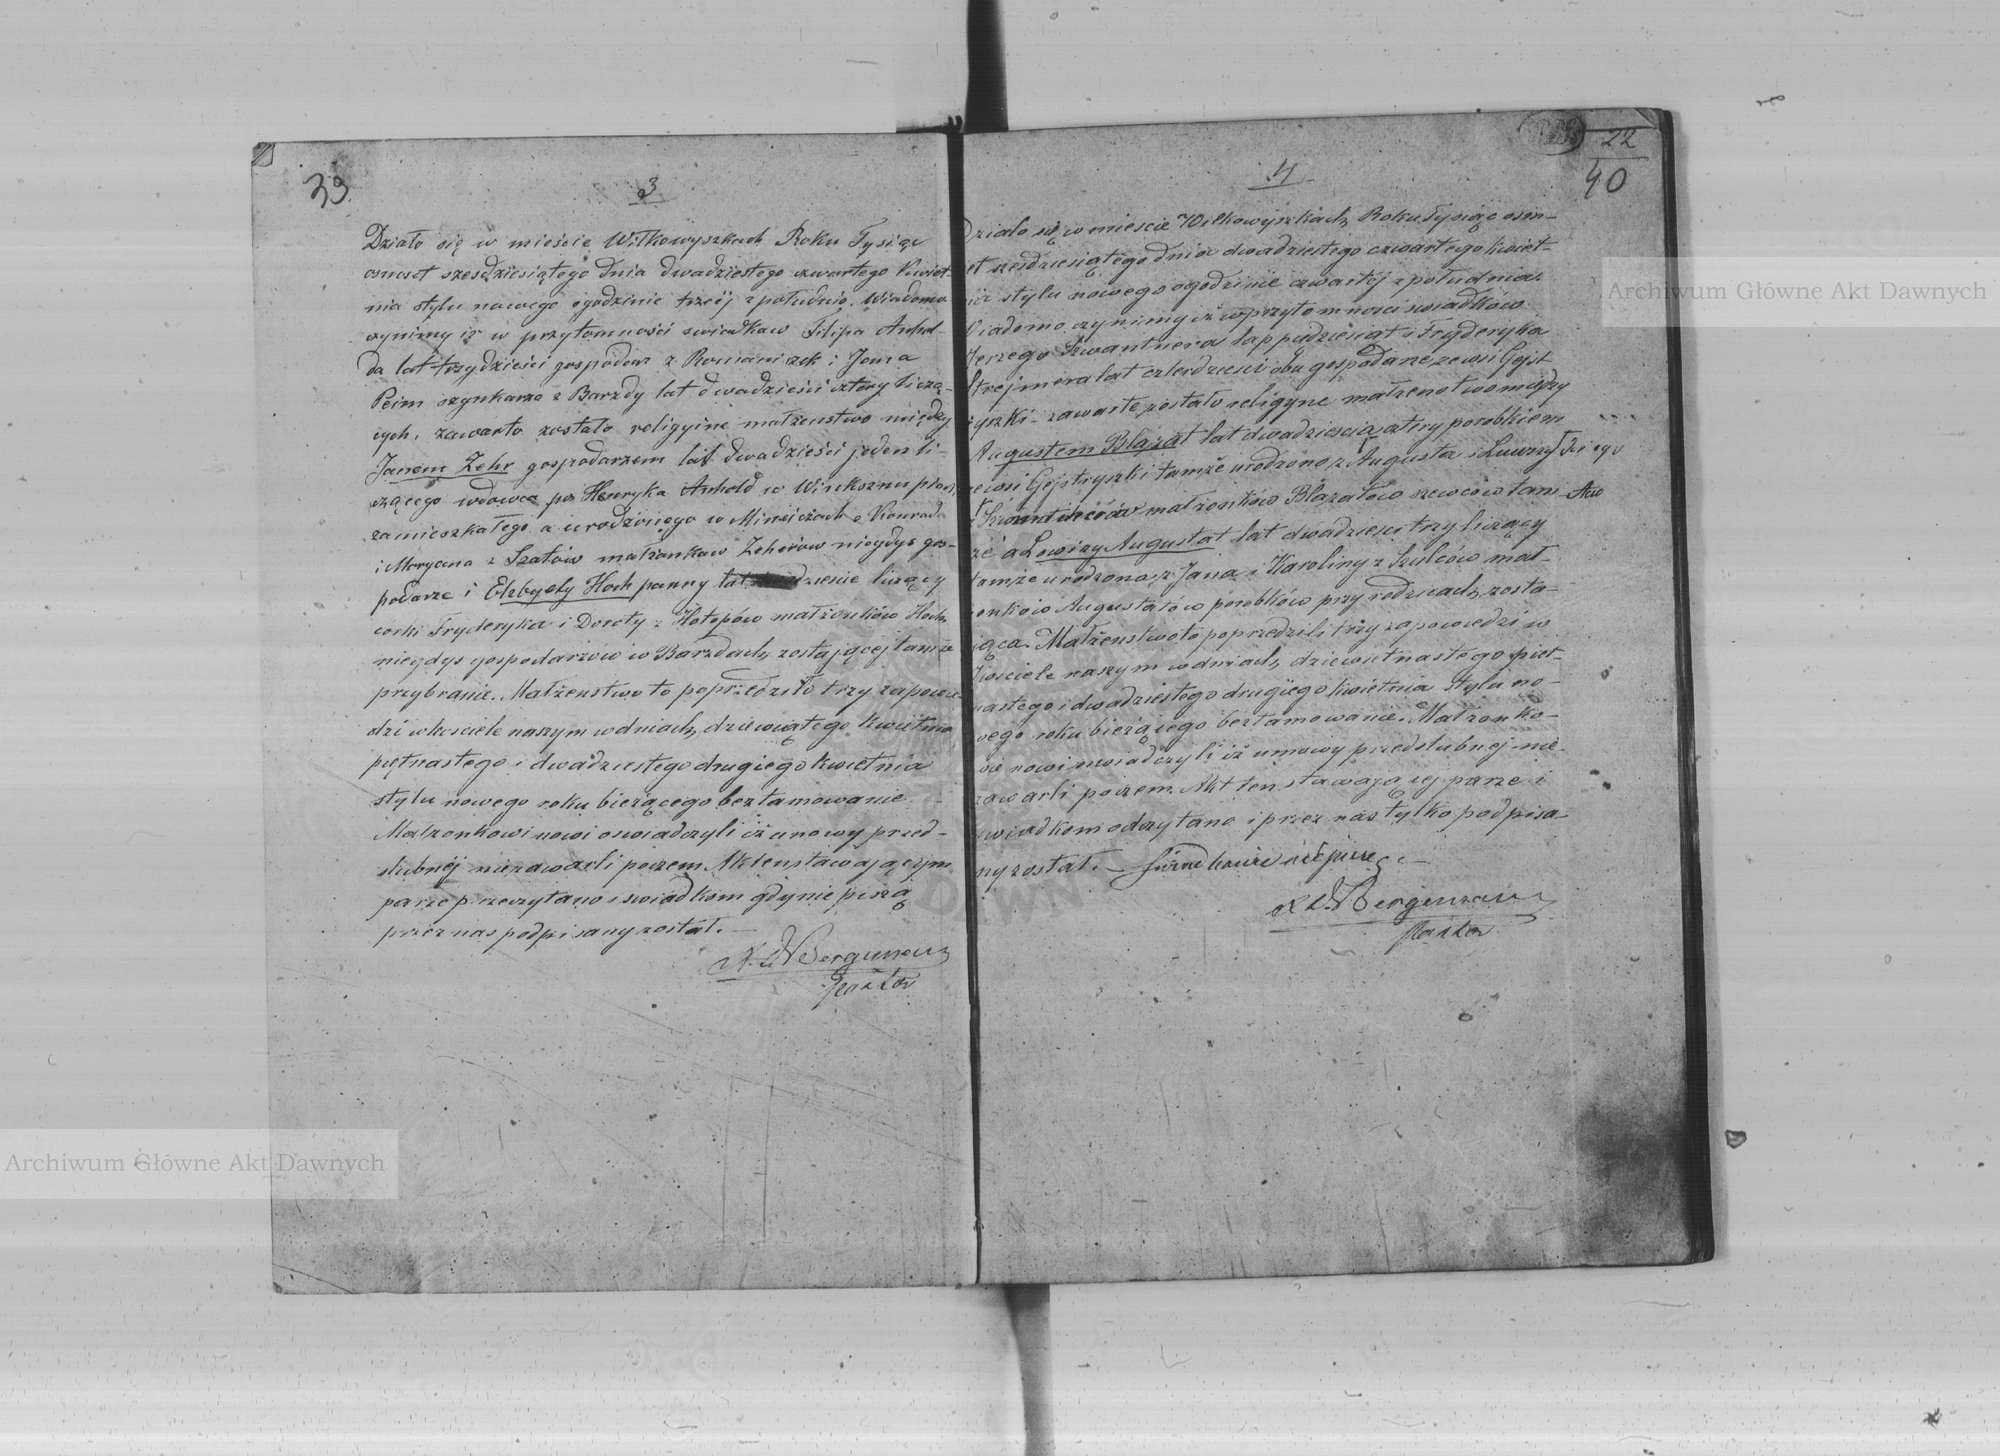 33.
3
Działo się w mieście Wiłkowyszkach Roku Tysiąc
osmset szesdziesiątego Dnia dwadziestego czwartego Kwiet
nia stylu nowego ogodzinie trzeij z południo. Wiadomo
czynimy iż w przytomności swiadkaw Filipa Anhol-
da lat trzydzieści gospodarz z Romaniszek i Jana
Peim szynkarza z Barzdy lat dwadzieści cztery licza-
cych, zawarto zostało religyine małżenstwo między
Janem Zehr gospodarzem lat dwadzieści jeden li-
czącego wdowca po Henryka Anhold w
zamieszkałego a urodzonego w z Konrada
i Maryana z Szatów małżonkaw Zeherów niegdys gos-
podarze i Elzbyety Hoch panny lat liczący
corki Fryderyka i Doroty z małżonków Hoch
niegdys gospodarzów w Barzdach, zostającej tamże
przybranie. Małżenstwo to poprzedziło trzy zapowie
dzi w kosciele naszym w dniach, dziewiątego Kwietnia
piętnastego i dwadziestego drugiego kwietnia
stylu nowego roku bieżącego beztamowanie.
Małzonkowi nowi oswiadczyli iż umowy przed-
slubnéj niezawarli poczem Akten stawającym
parze przeczytano i swiadkom gdynie piszą
przez nas podpisany został.
Bergmann
Pastor
22
40
4
Działo się w miescie Wiłkowyszkach, Roku Tysiąc osm-
set szesdziesiątego dnia dwadziestego czwartego kwiet-
nia stylu nowego ogodzinie czwartéj z południa.
Wiadomo czynimy iż w przytomnosci swiadków
Jerzego Szwantnera lat pędziesiąt i Fryderyka
Strejmera lat czterdziesci obu gospodarze zewsi Gejst
ryszki - zawarte zostało religyne małzenstwo między
Augustem Blazat lat dwadziescia cztry porobkiem
zewsi Gejstryszki tamże urodzono z Augusta i Luwizy
z małżonków Blazatów szewców tam-
że a Lowizy Augustat lat dwadziescia trzy liczący
tamże urodzona z Jana i Karoliny z Szulców mał-
zonkow Augustatów porobków przy rodzicach, zosta-
jąca. Małżenstwo to poprzedzili trzy zapowiedzi w
kosciele naszym w dniach, dziewietnastego piet-
nastego i dwadziestego drugiego kwietnia stylu no-
wego roku bieżącego beztamowanie. Małzonko-
wie nowi oswiadczyli iż umowy przedslubnej nie-
zawarli poczem Akt ten stawającej parze i
swiadkom odczytano i przez nas tylko podpisa-
ny został. - Swiadkowie nie piszą.
Bergmann
Pastor
Archiwum Główne Akt Dawnych
Archiwum Główne Akt Dawnych